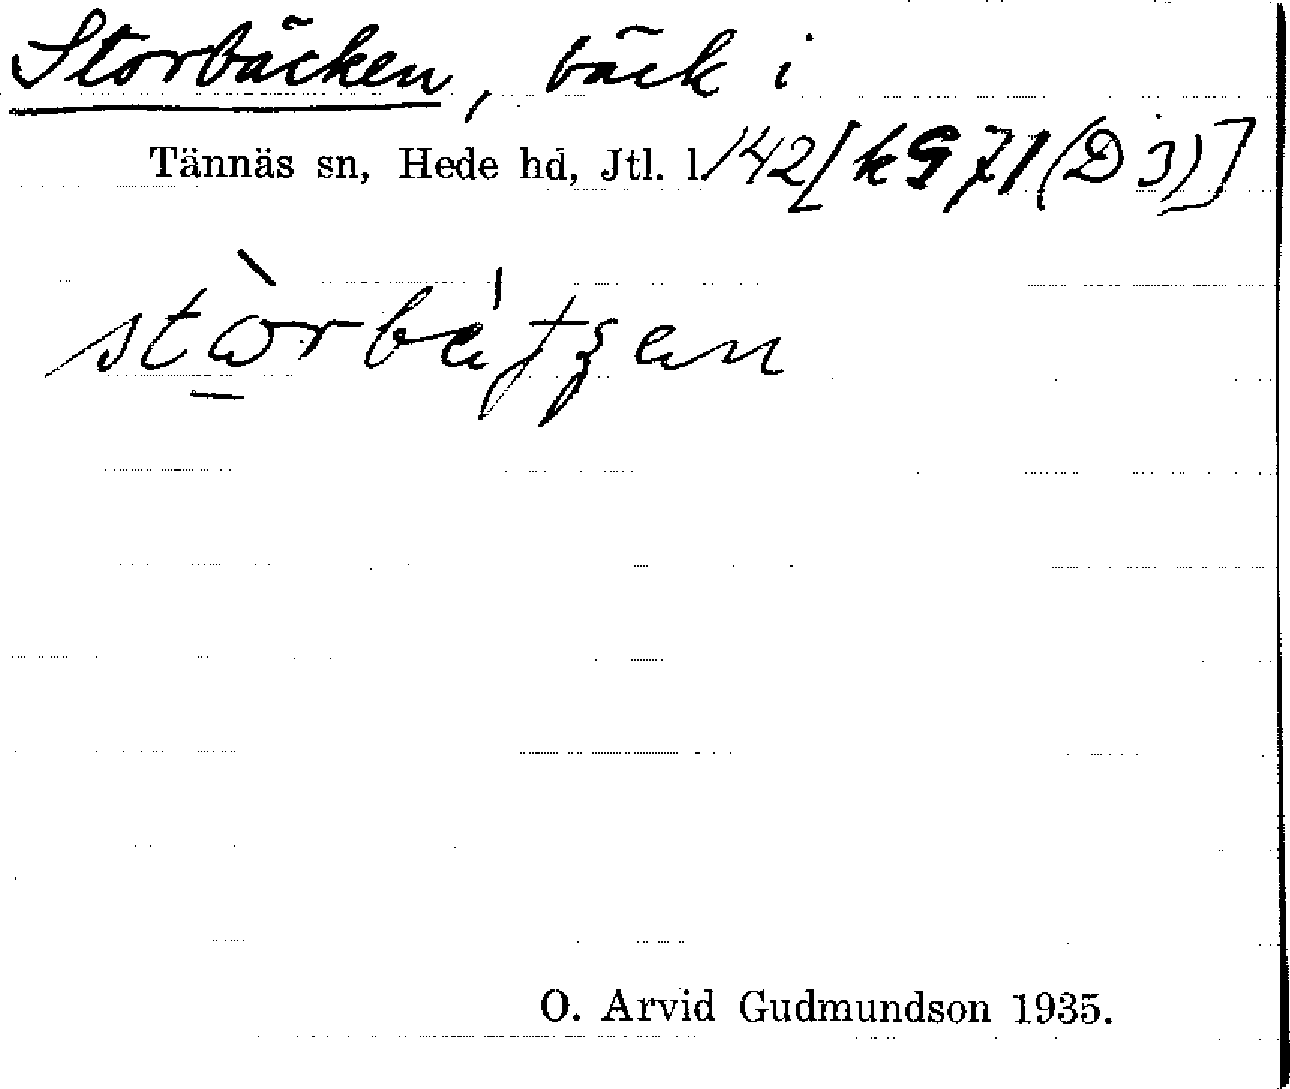 Storbäcken, bäck i
Tännäs sn, Hede hd, Jtl. l. 142 [k G 71 (D 3)]
O. Arvid Gudmundson 1935.